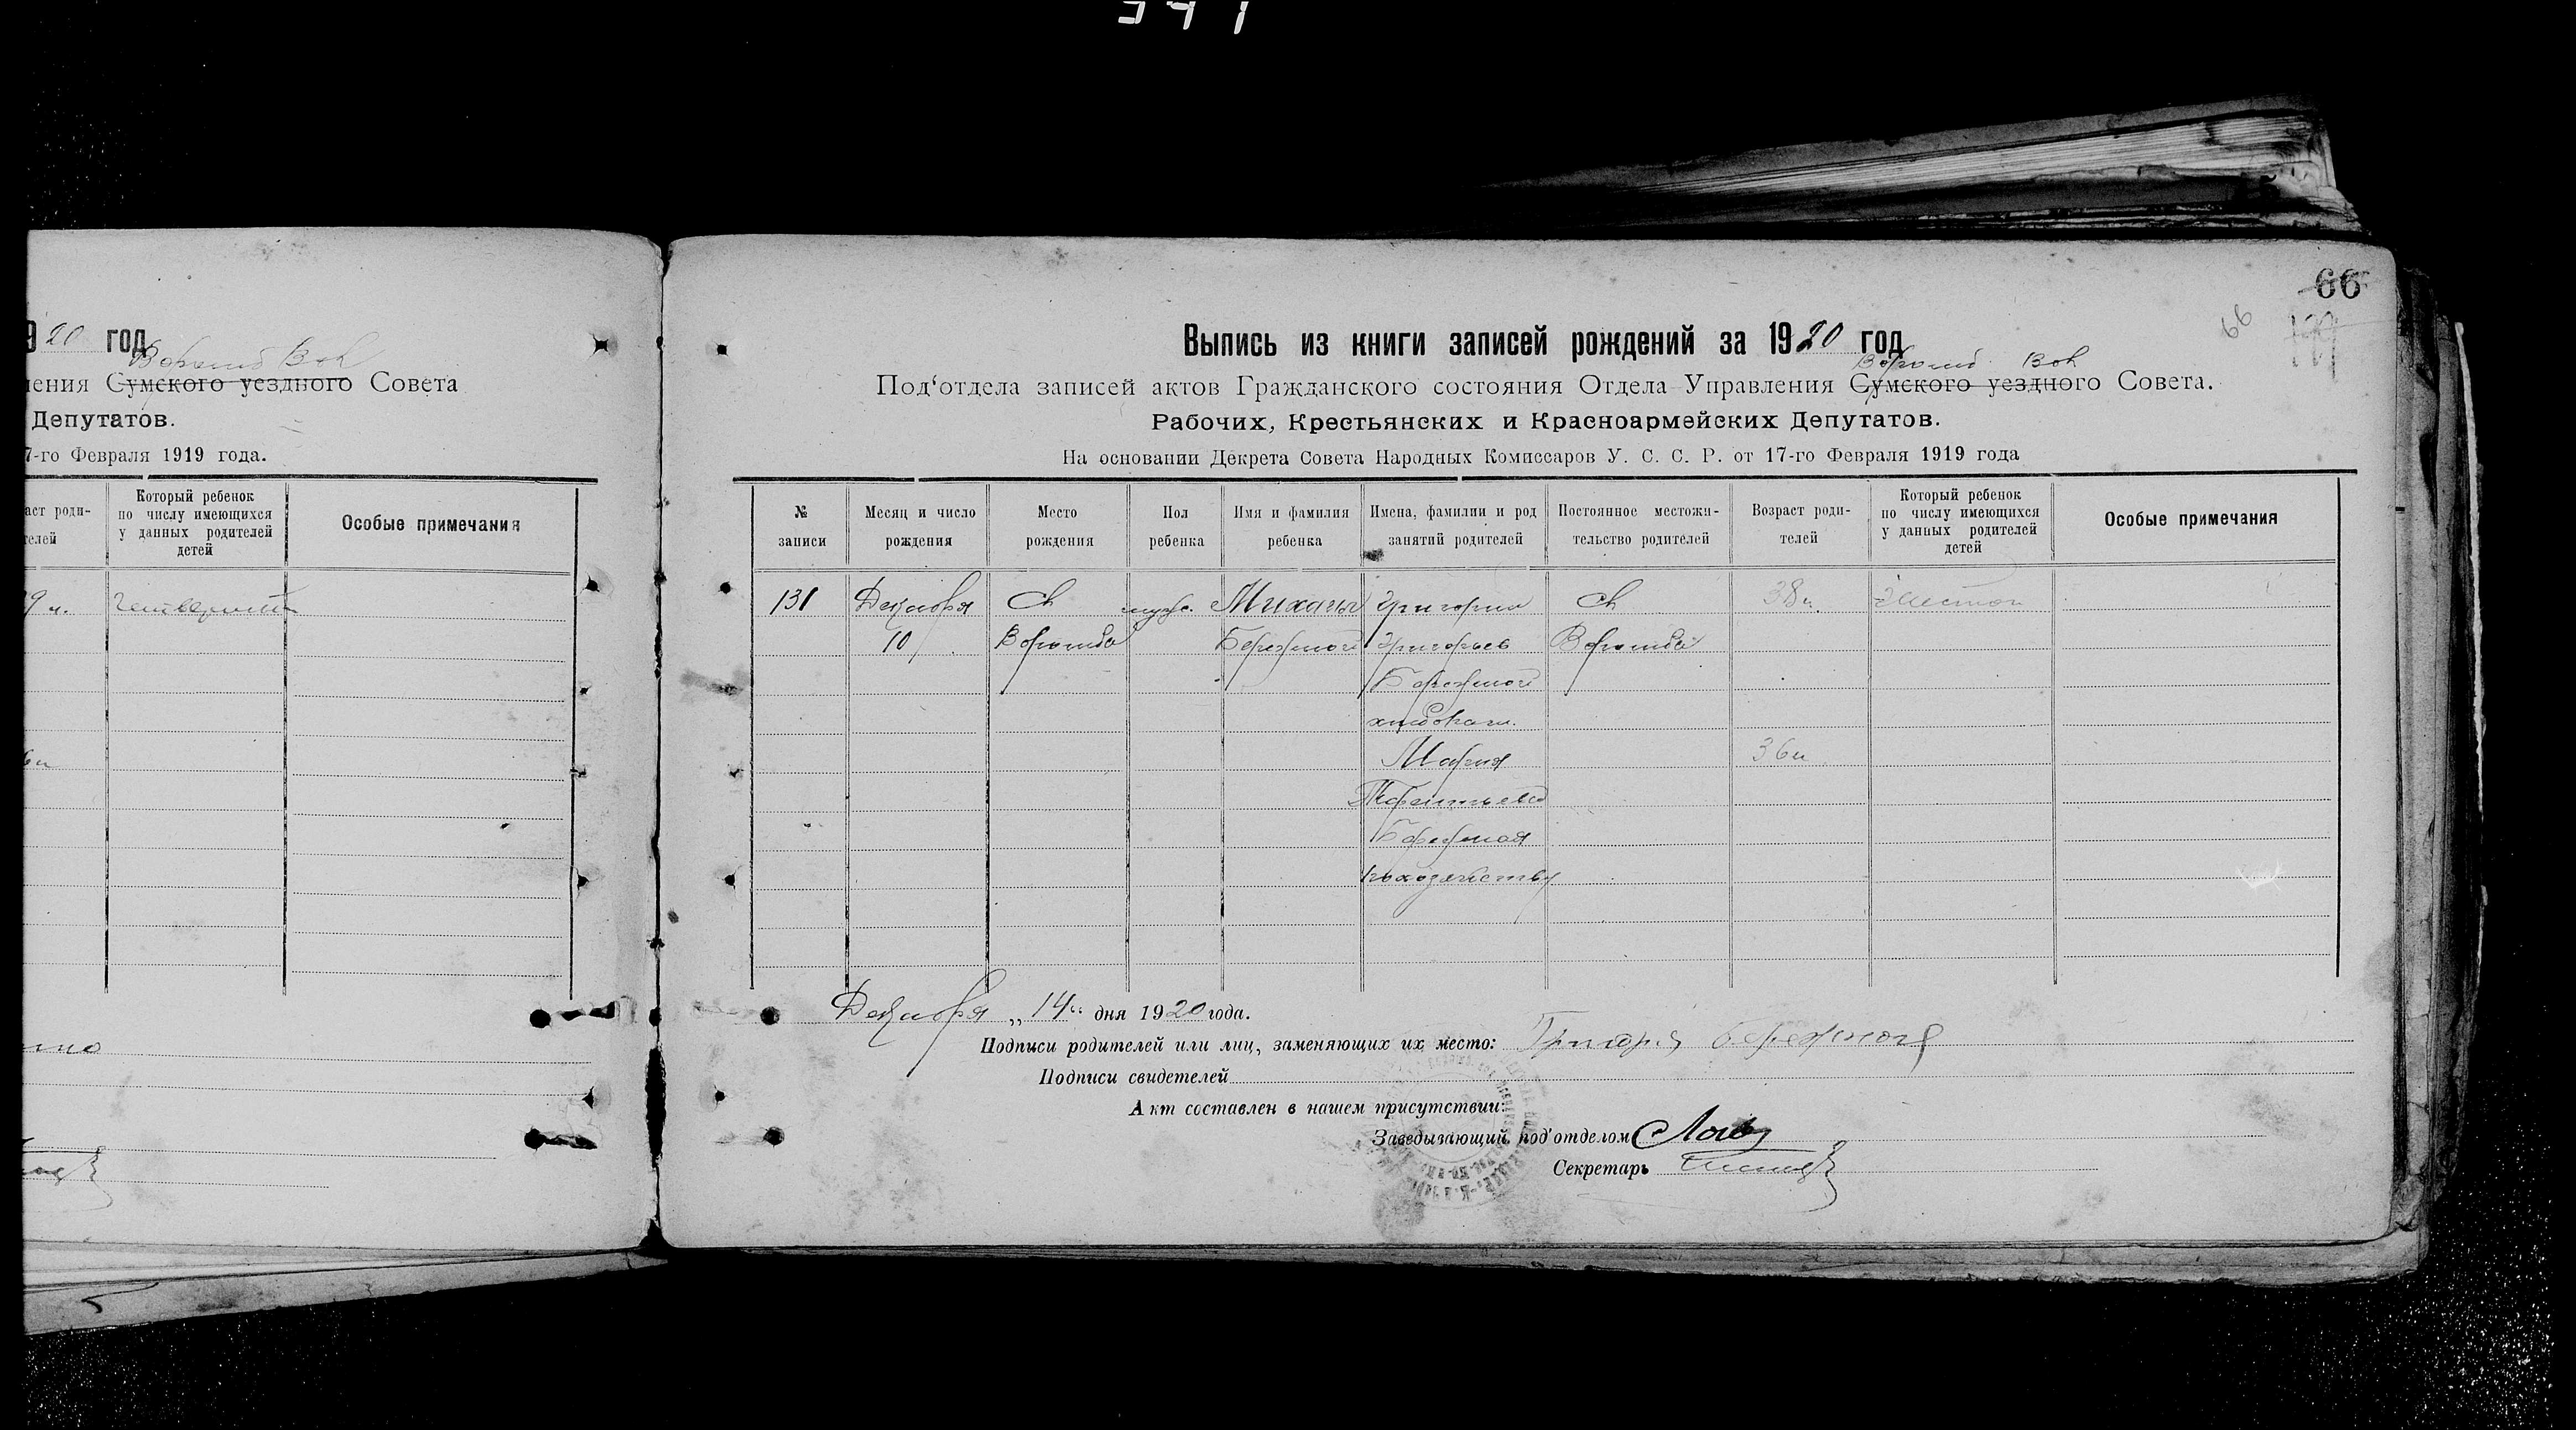 341
20 год
Ворожб Вол
ения Сумского уездного Совета
Депутатов.
7-го Февраля 1919 года.
аст роди-
телей
Который ребенок
по числу имеющихся
у данных родителей
детей
Особые примечания
9 л.
четвертый
66
66
Выпись из книги записей рождений за 1920 год
Ворожб Вол
Под‘отдела записей актов Гражданского состояния Отдела Управления Сумского уездного Совета.
Рабочих, Крестьянских и Красноармейских Депутатов.
На основании Декрета Совета Народных Комиссаров У. С. С. Р. от 17-го Февраля 1919 года
№ записи
Месяц и число рождения
Место рождения
Пол ребенка
Имя и фамилия ребенка
Имена, фамилии и род занятий родителей
Постоянное местожи- тельство родителей
Возраст роди- телей
Который ребенок по числу имеющихся у данных родителей детей
Особые примечания
131 Декабря С муж. Михаил Григорий С 38 л. Шестой
10 Ворожба Бережной Григорьев Ворожба
Бережной
хлебопаш.
Мария 36 л
Бережная
Декабря „14“ дня 1920 года.
Подписи родителей или лиц, заменяющих их место: Григорий Бережной
Подписи свидетелей
Акт составлен в нашем присутствии:
Заведывающий под‘отделом
Секретарь